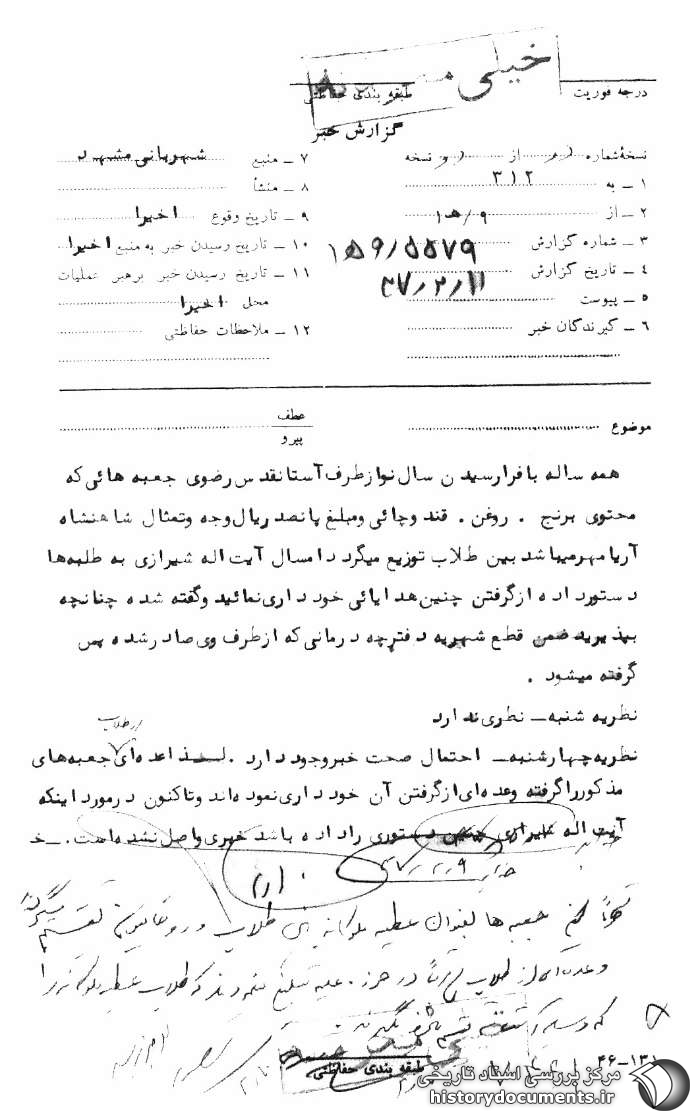 خیلی
درجه فوریت
طبقه بندی حفاظتی
گزارش خبر
نسخهٔ شماره از نسخه
۱ ـ به ۳۱۲
۲ ـ از ۹/ه۱
۳ ـ شماره گزارش ۱۵۹۸۵۵۷۹
۴ ـ تاریخ گزارش ۴۷/۲/۱۱
۵ ـ پیوست
۶ ـ گیرندگان خبر
۷ ـ منبع شهربانی مشهد
۸ ـ منشأ
۹ ـ تاریخ وقوع اخیرا
۱۰ ـ تاریخ رسیدن خبر به منبع اخیرا
۱۱ ـ تاریخ رسیدن خبر برهبر عملیات
محل اخیرا
۱۲ ـ ملاحظات حفاظتی
موضوع
عطف
پیرو
همه ساله بافرارسیدن سال نوازطرف آستانقدس رضوی جعبه هائی که
محتوی برنج . روغن . قند وچائی ومبلغ پانصد ریال وجه وتمثال شاهنشاه
آریامهرمیباشد بین طلاب توزیع میگرد دامسال آیت اله شیرازی به طلبه‌ها
دستورداده ازگرفتن چنین هدایائی خودداری نمائید وگفته شده چنانچه
بپذیرید ضمن قطع شهریه دفترچه درمانی که ازطرف وی صادرشده پس
گرفته میشود .
نظریه شنبه ـ نظری ندارد
از طلاب
نظریه چهارشنبه ـ احتمال صحت خبروجود دارد . لــذا عده‌ای جعبه‌های
مذکورراگرفته وعده‌ای ازگرفتن آن خودداری نموده‌اند وتاکنون درمورد اینکه
آیت اله شیرازی چنین دستوری راداده باشد خبری واصل نشده است . ـ خ
۴۷/۲/۹
جعبه ها بعنوان عطیه ملوکانه طلاب و روحانیون تقسیم میگردد
وعده‌ای از طلاب در حوزه علیه تبلیغ که طلاب عطیه ملوکانه را
که تقسیم نگیرند
طبقه بندی حفاظتی
۴۶-۱۳۱
مرکز بررسی اسناد تاریخی
historydocuments.ir